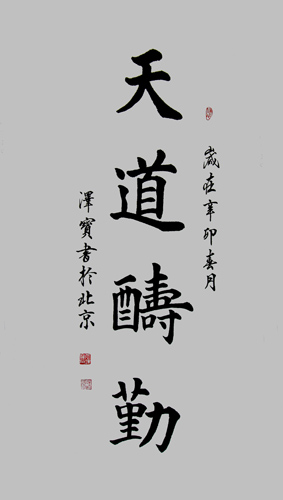 歲在辛卯春月
天道酬勤
澤寶書於北京